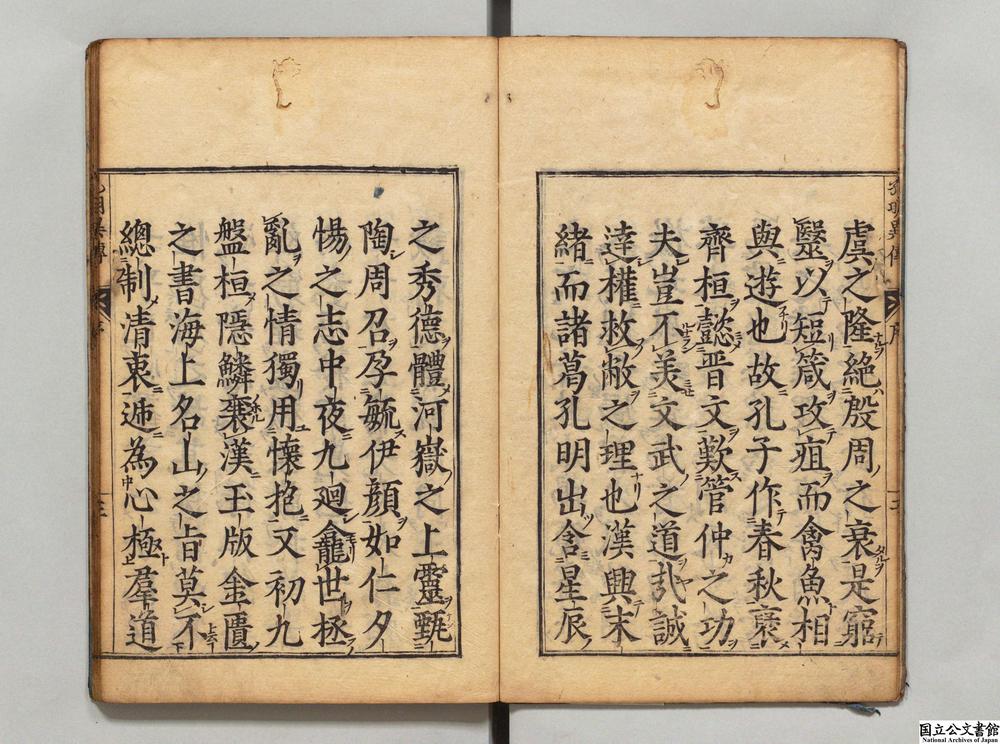 虞之隆絶殷周之衰是窮
毉以短箴攻疽而禽魚相
與遊也故孔子作春秋褒
齊桓懿晋文歎管仲之功
夫豈不美文武之道㢤誠
達權救敝之理也漢興末
緒而諸葛孔明出含星辰
之秀德體河嶽之上靈甄
陶周召孕毓伊顔如仁夕
惕之志中夜九廻龕世拯
亂之情獨用懷抱又初九
盤桓隱鱗襄漢玉版金匱
之書海上名山之旨莫不
總制清衷逓為心極羣道
国立公文書館
National Archives of Japan